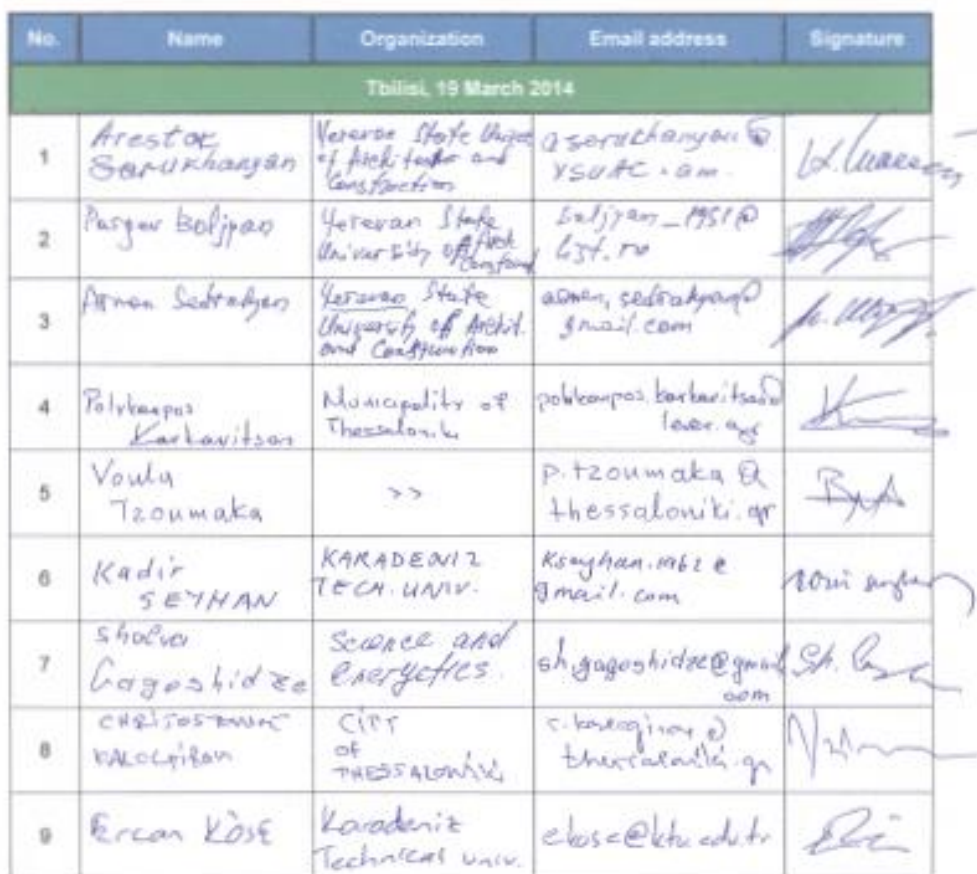 No. Name Organization Email address Signature
Tbilisi, 19 March 2014
1
Arestak
Sarukhanyan
Yerevan State
of Architecture and
Construction
asarukhanyan@
ysuac.am
2
Boljyan
Yerevan State
University of
boljyan_1951@
list.ru
3
Armen Sedrakyan
Yerevan State
University of Archit.
and Construction
armen.sedrakyan@
gmail.com
4
Polykarpos
Karkavitsas
Municipality of
Thessaloniki
5
Voula
Tzoumaka
>>
p.tzoumaka@
thessaloniki.gr
6
Kadir
SEYHAN
KARADENIZ
TECH. UNIV.
kseyhan.1962@
gmail.com
7
Shalva
Gagoshidze
Science and
energetics.
sh.gagoshidze@gmail
com
8
CITY
OF
THESSALONIKI
thessaloniki.gr
9
Ercan KÖSE
Karadeniz
Technical univ.
ekose@ktu.edu.tr